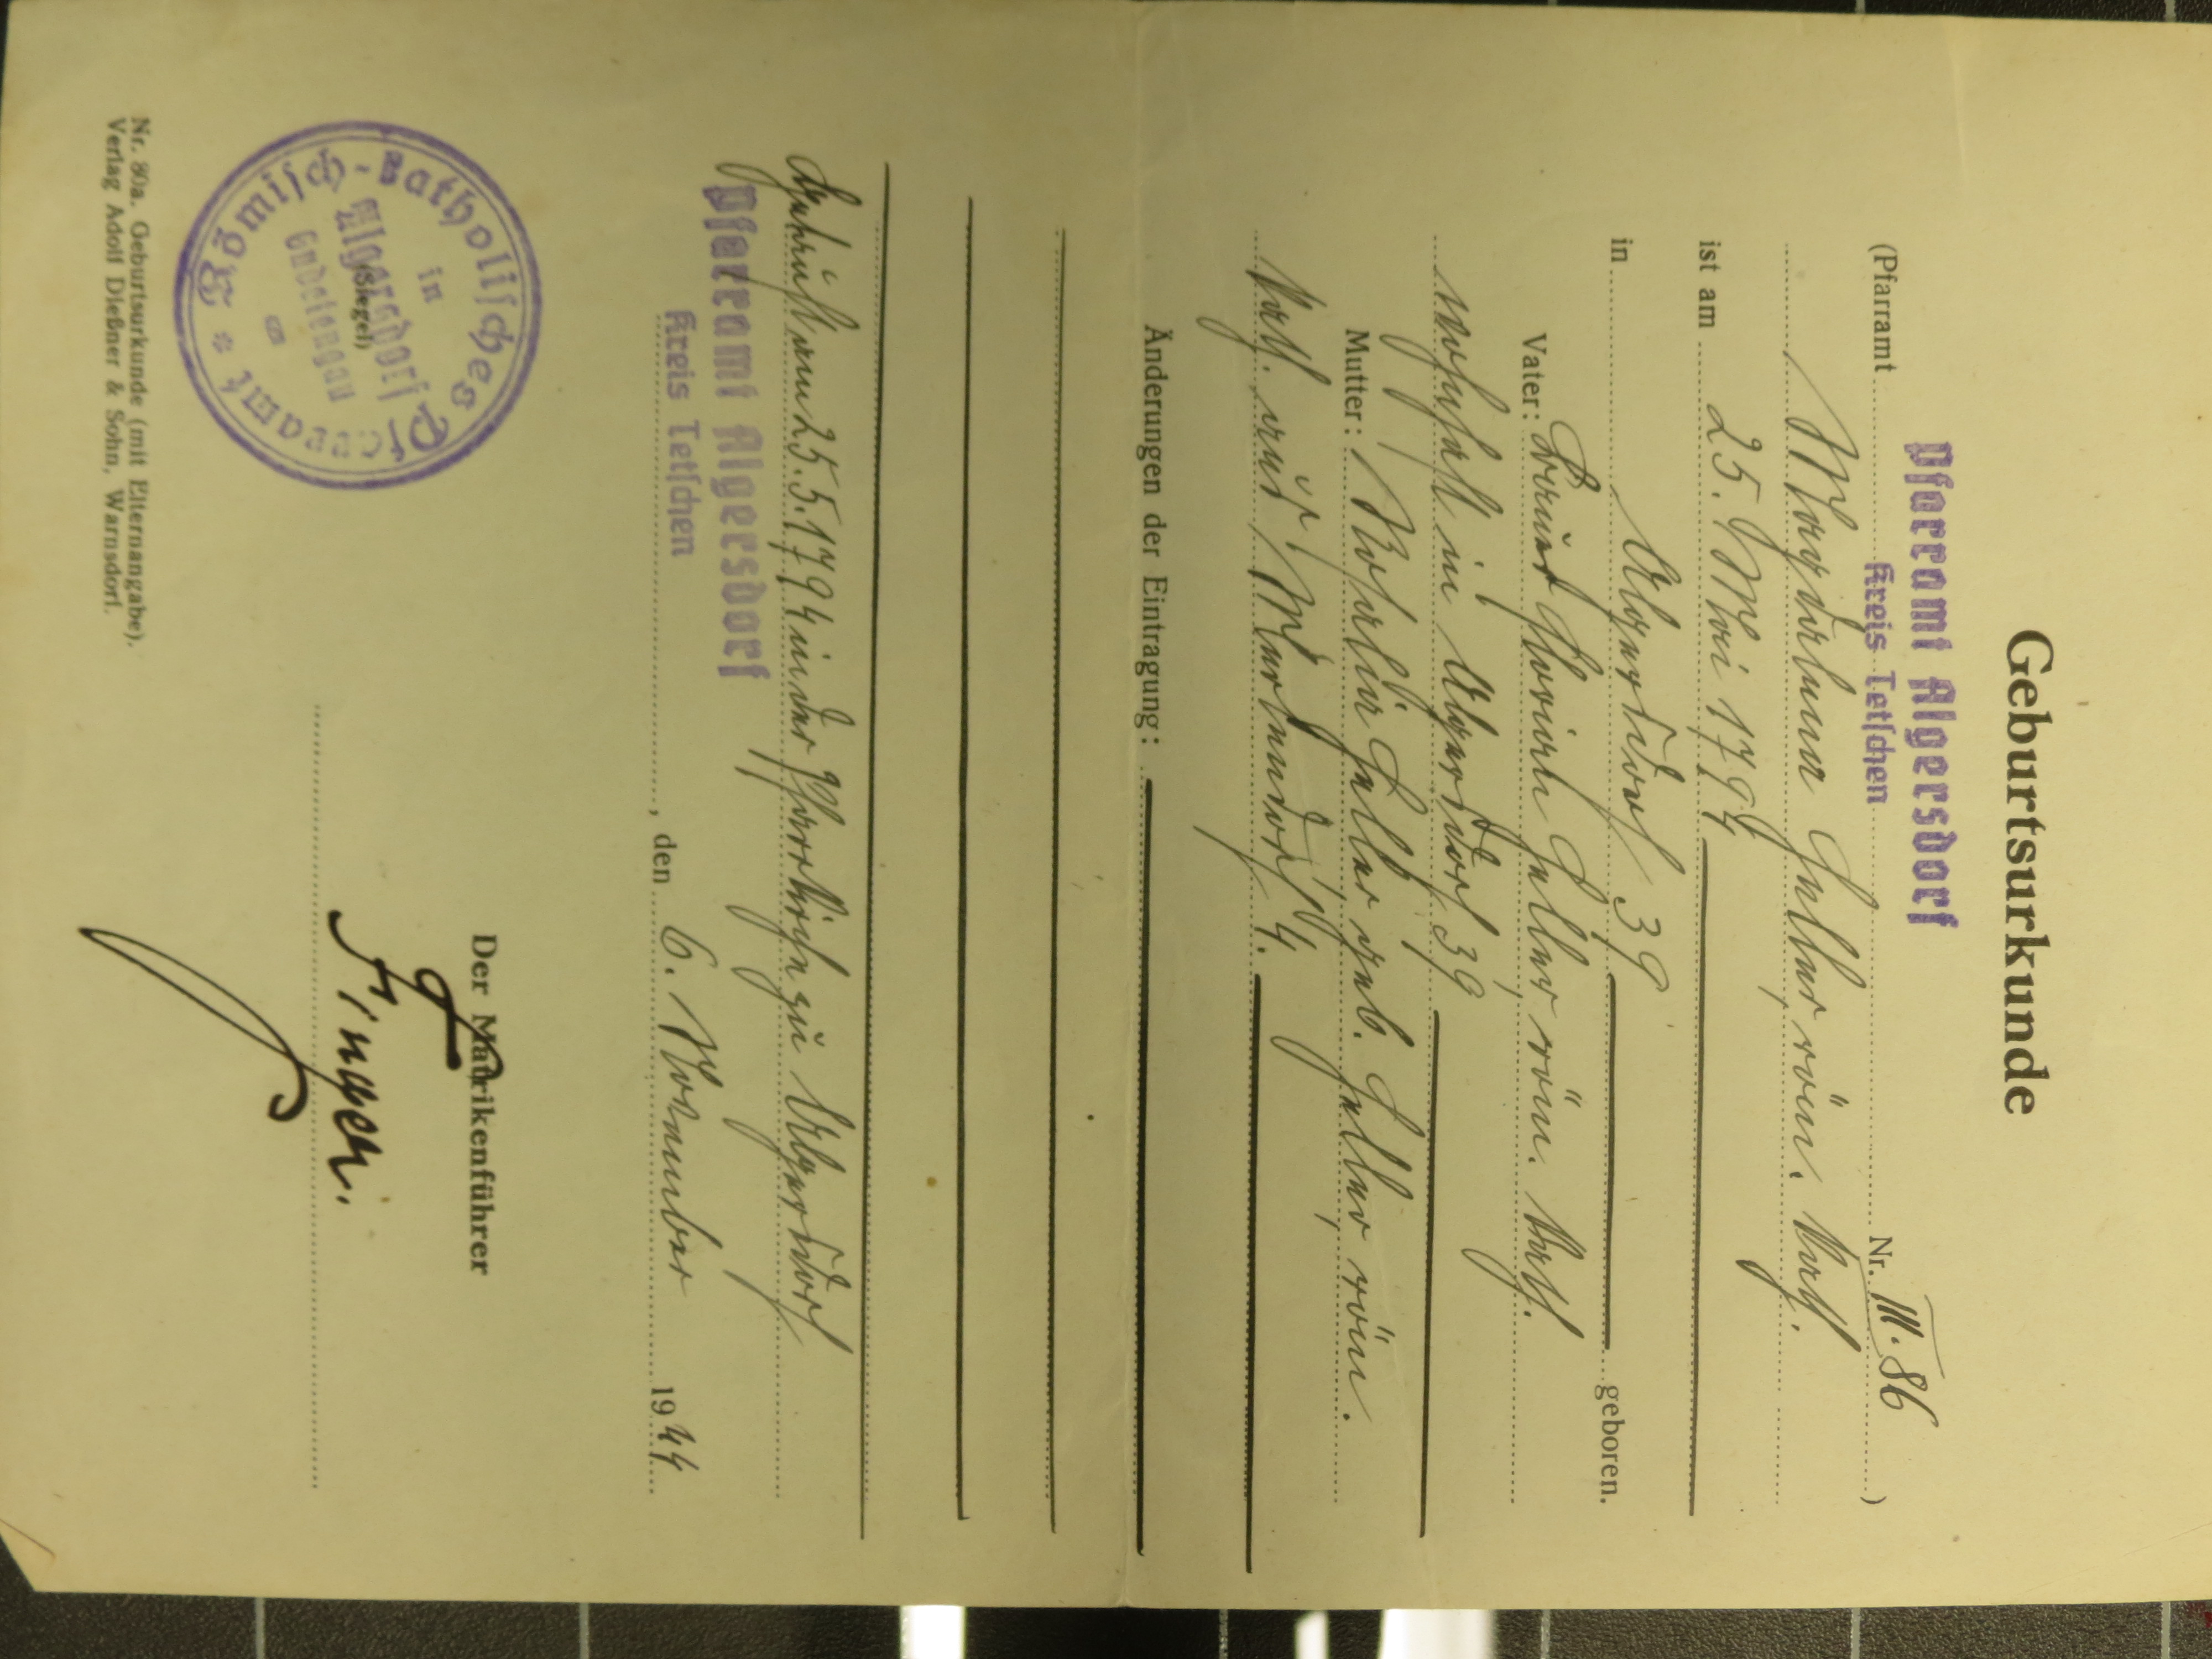 Geburtsurkunde
Pfarramt Algersdorf
(Pfarramt Kreis Tetschen Nr. III. 86 )
Magdalena Heller, röm. kath.
ist am 25. Mai 1794
in Algersdorf 39 geboren.
Vater: Bauer Florian Heller, röm. kath.
wohnhaft in Algersdorf 39
Mutter: Rosalia Heller, geb. Heller, röm.
kath. aus Mertendorf 4.
Änderungen der Eintragung:
Getauft am 25.5.1794 in der Pfarrkirche zu Algersdorf
Pfarramt Algersdorf
Kreis Tetschen , den 6. November 1944
Der Matrikenführer
Finger.
Römisch-katholisches Pfarramt *
in
Algersdorf
(Siegel)
Sudetengau
Nr. 80a. Geburtsurkunde (mit Elternangabe).
Verlag Adolf Dießner & Sohn, Warnsdorf.